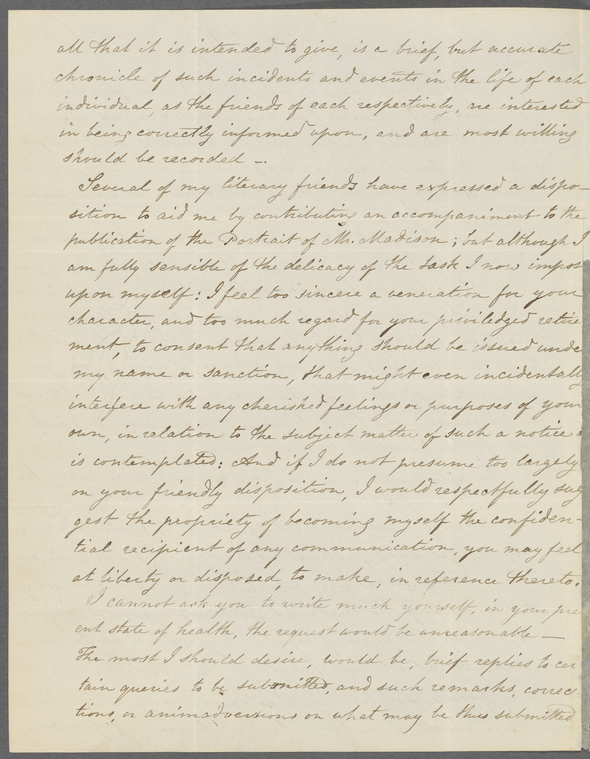 all that it is intended to give, is a brief, but accurate
chronicle of such incidents and events in the life of each
individual, as the friends of each respectively, are interested
in being correctly informed upon, and are most willing
should be recorded —.
Several of my literary friends have expressed a dispo-
sition to aid me by contributing an accompaniment to the
publication of the Portrait of Mr. Madison; but although I
am fully sensible of the delicacy of the task I now impos
upon myself: I feel too sincere a veneration for your
character, and too much regard for your priviledged retire
ment, to consent that anything should be issued unde
my name or sanction, that might even incidentally
interfere with any cherished feelings or purposes of your
own, in relation to the subject matter of such a notice a
is contemplated: And if I do not presume too largely
on your friendly disposition, I would respectfully sug
gest the propriety of becoming myself the confiden-
tial recipient of any communication, you may feel
at liberty or disposed, to make, in reference thereto.
I cannot ask you to write much yourself, in your pre
ent state of health, the request would be unreasonable —
The most I should desire, would be, brief replies to cer
tain queries to be submitted, and such remarks, correc
tions, or animadversions on what may be thus submitted